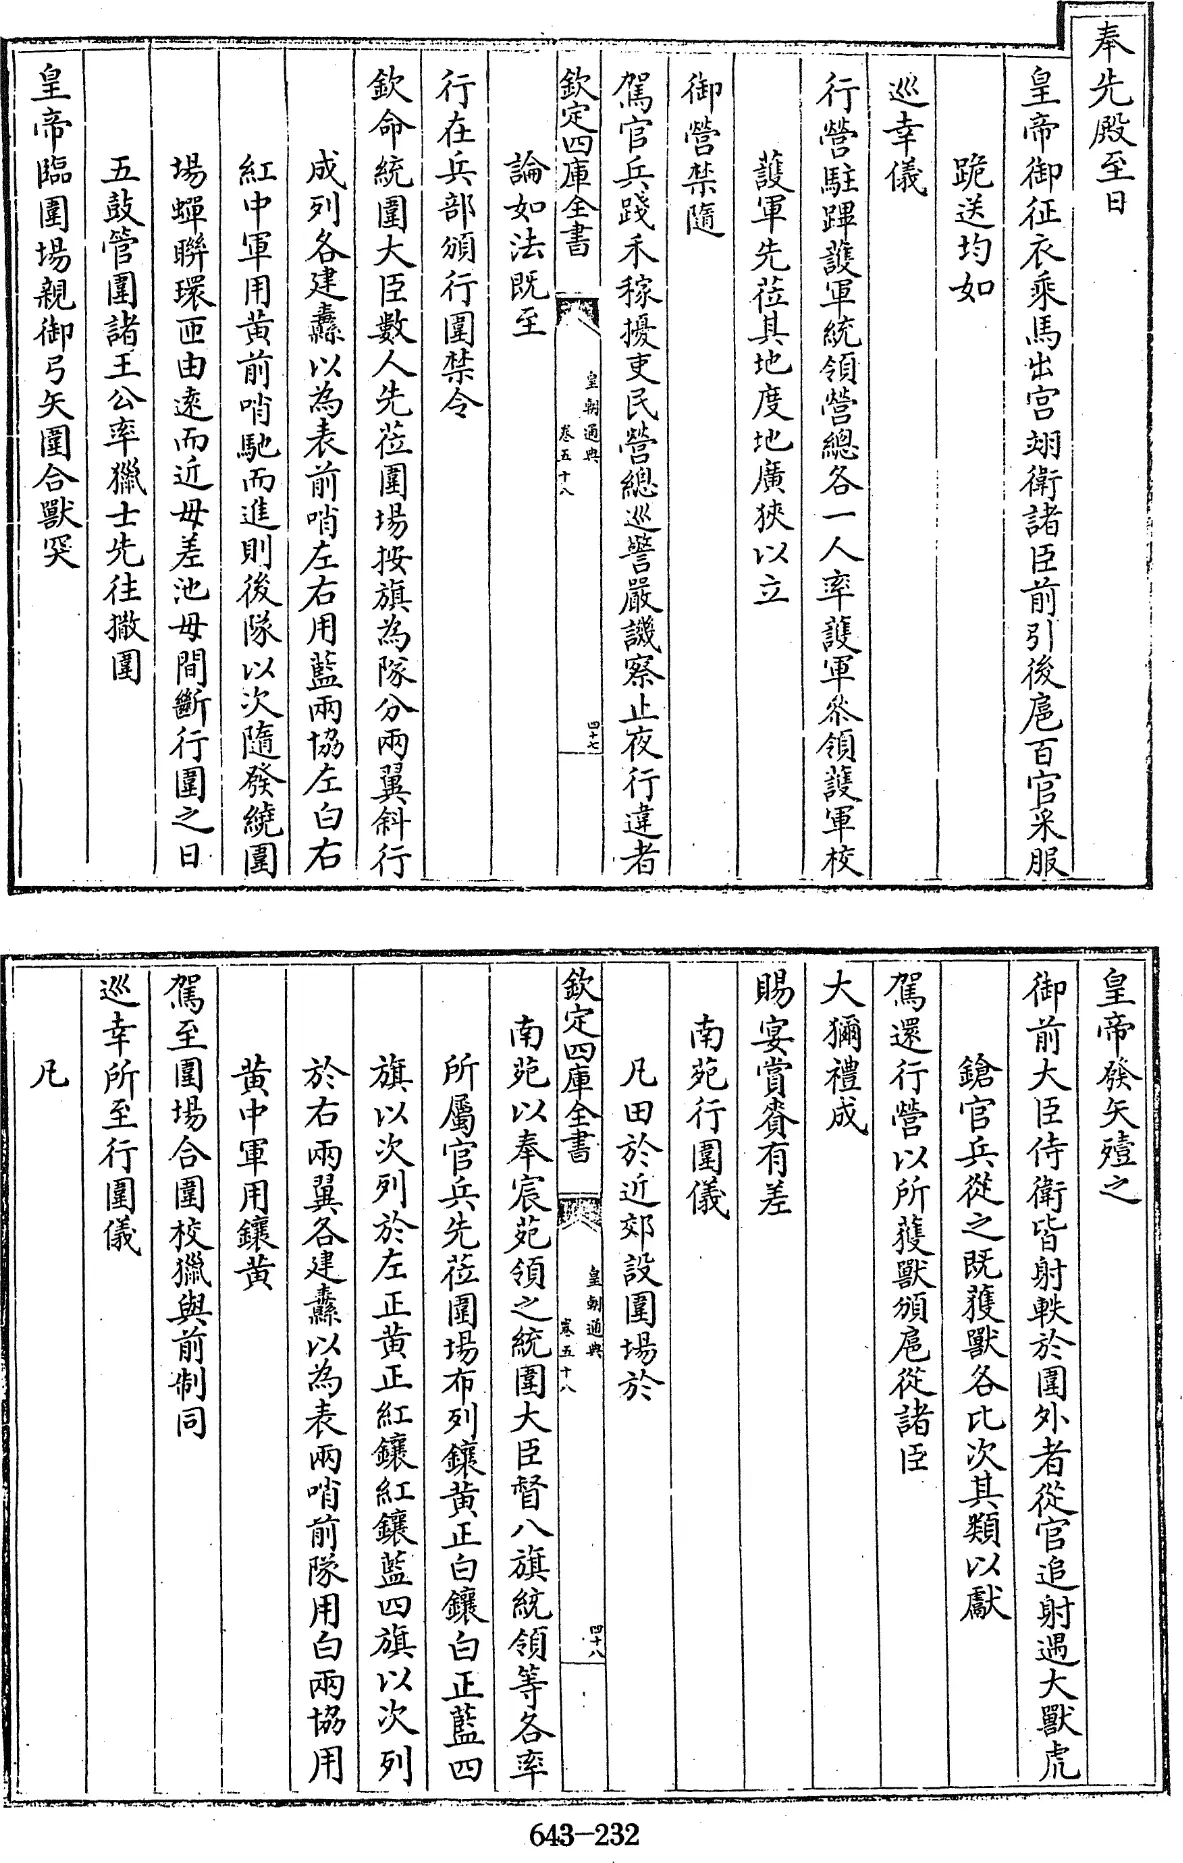 奉先殿至日
皇帝御征衣乘馬出宮翊衛諸臣前引後扈百官采服
跪送均如
巡幸儀
行營駐蹕護軍統領營總各一人率護軍叅領護軍校
護軍先蒞其地度地廣狹以立
御營禁隨
駕官兵踐禾稼擾吏民營總巡警嚴譏察止夜行違者
欽定四庫全書
皇朝通典
卷五十八
四十七
論如法既至
行在兵部頒行圍禁令
欽命統圍大臣數人先蒞圍場按旗為隊分兩翼斜行
成列各建纛以為表前哨左右用藍兩協左白右
紅中軍用黃前哨馳而進則後隊以次隨發繞圍
場蟬聯環匝由遠而近毋差池毋間斷行圍之日
五鼓管圍諸王公率獵士先往撒圍
皇帝臨圍場親御弓矢圍合獸突
皇帝發矢殪之
御前大臣侍衛皆射軼於圍外者從官追射遇大獸虎
鎗官兵從之既獲獸各比次其類以獻
駕還行營以所獲獸頒扈從諸臣
大獮禮成
賜宴賞賚有差
南苑行圍儀
凡田於近郊設圍場於
欽定四庫全書
皇朝通典
卷五十八
四十八
南苑以奉宸苑領之統圍大臣督八旗統領等各率
所屬官兵先蒞圍場布列鑲黃正白鑲白正藍四
旗以次列於左正黃正紅鑲紅鑲藍四旗以次列
於右兩翼各建纛以為表兩哨前隊用白兩協用
黃中軍用鑲黃
駕至圍場合圍校獵與前制同
巡幸所至行圍儀
凡
643-232